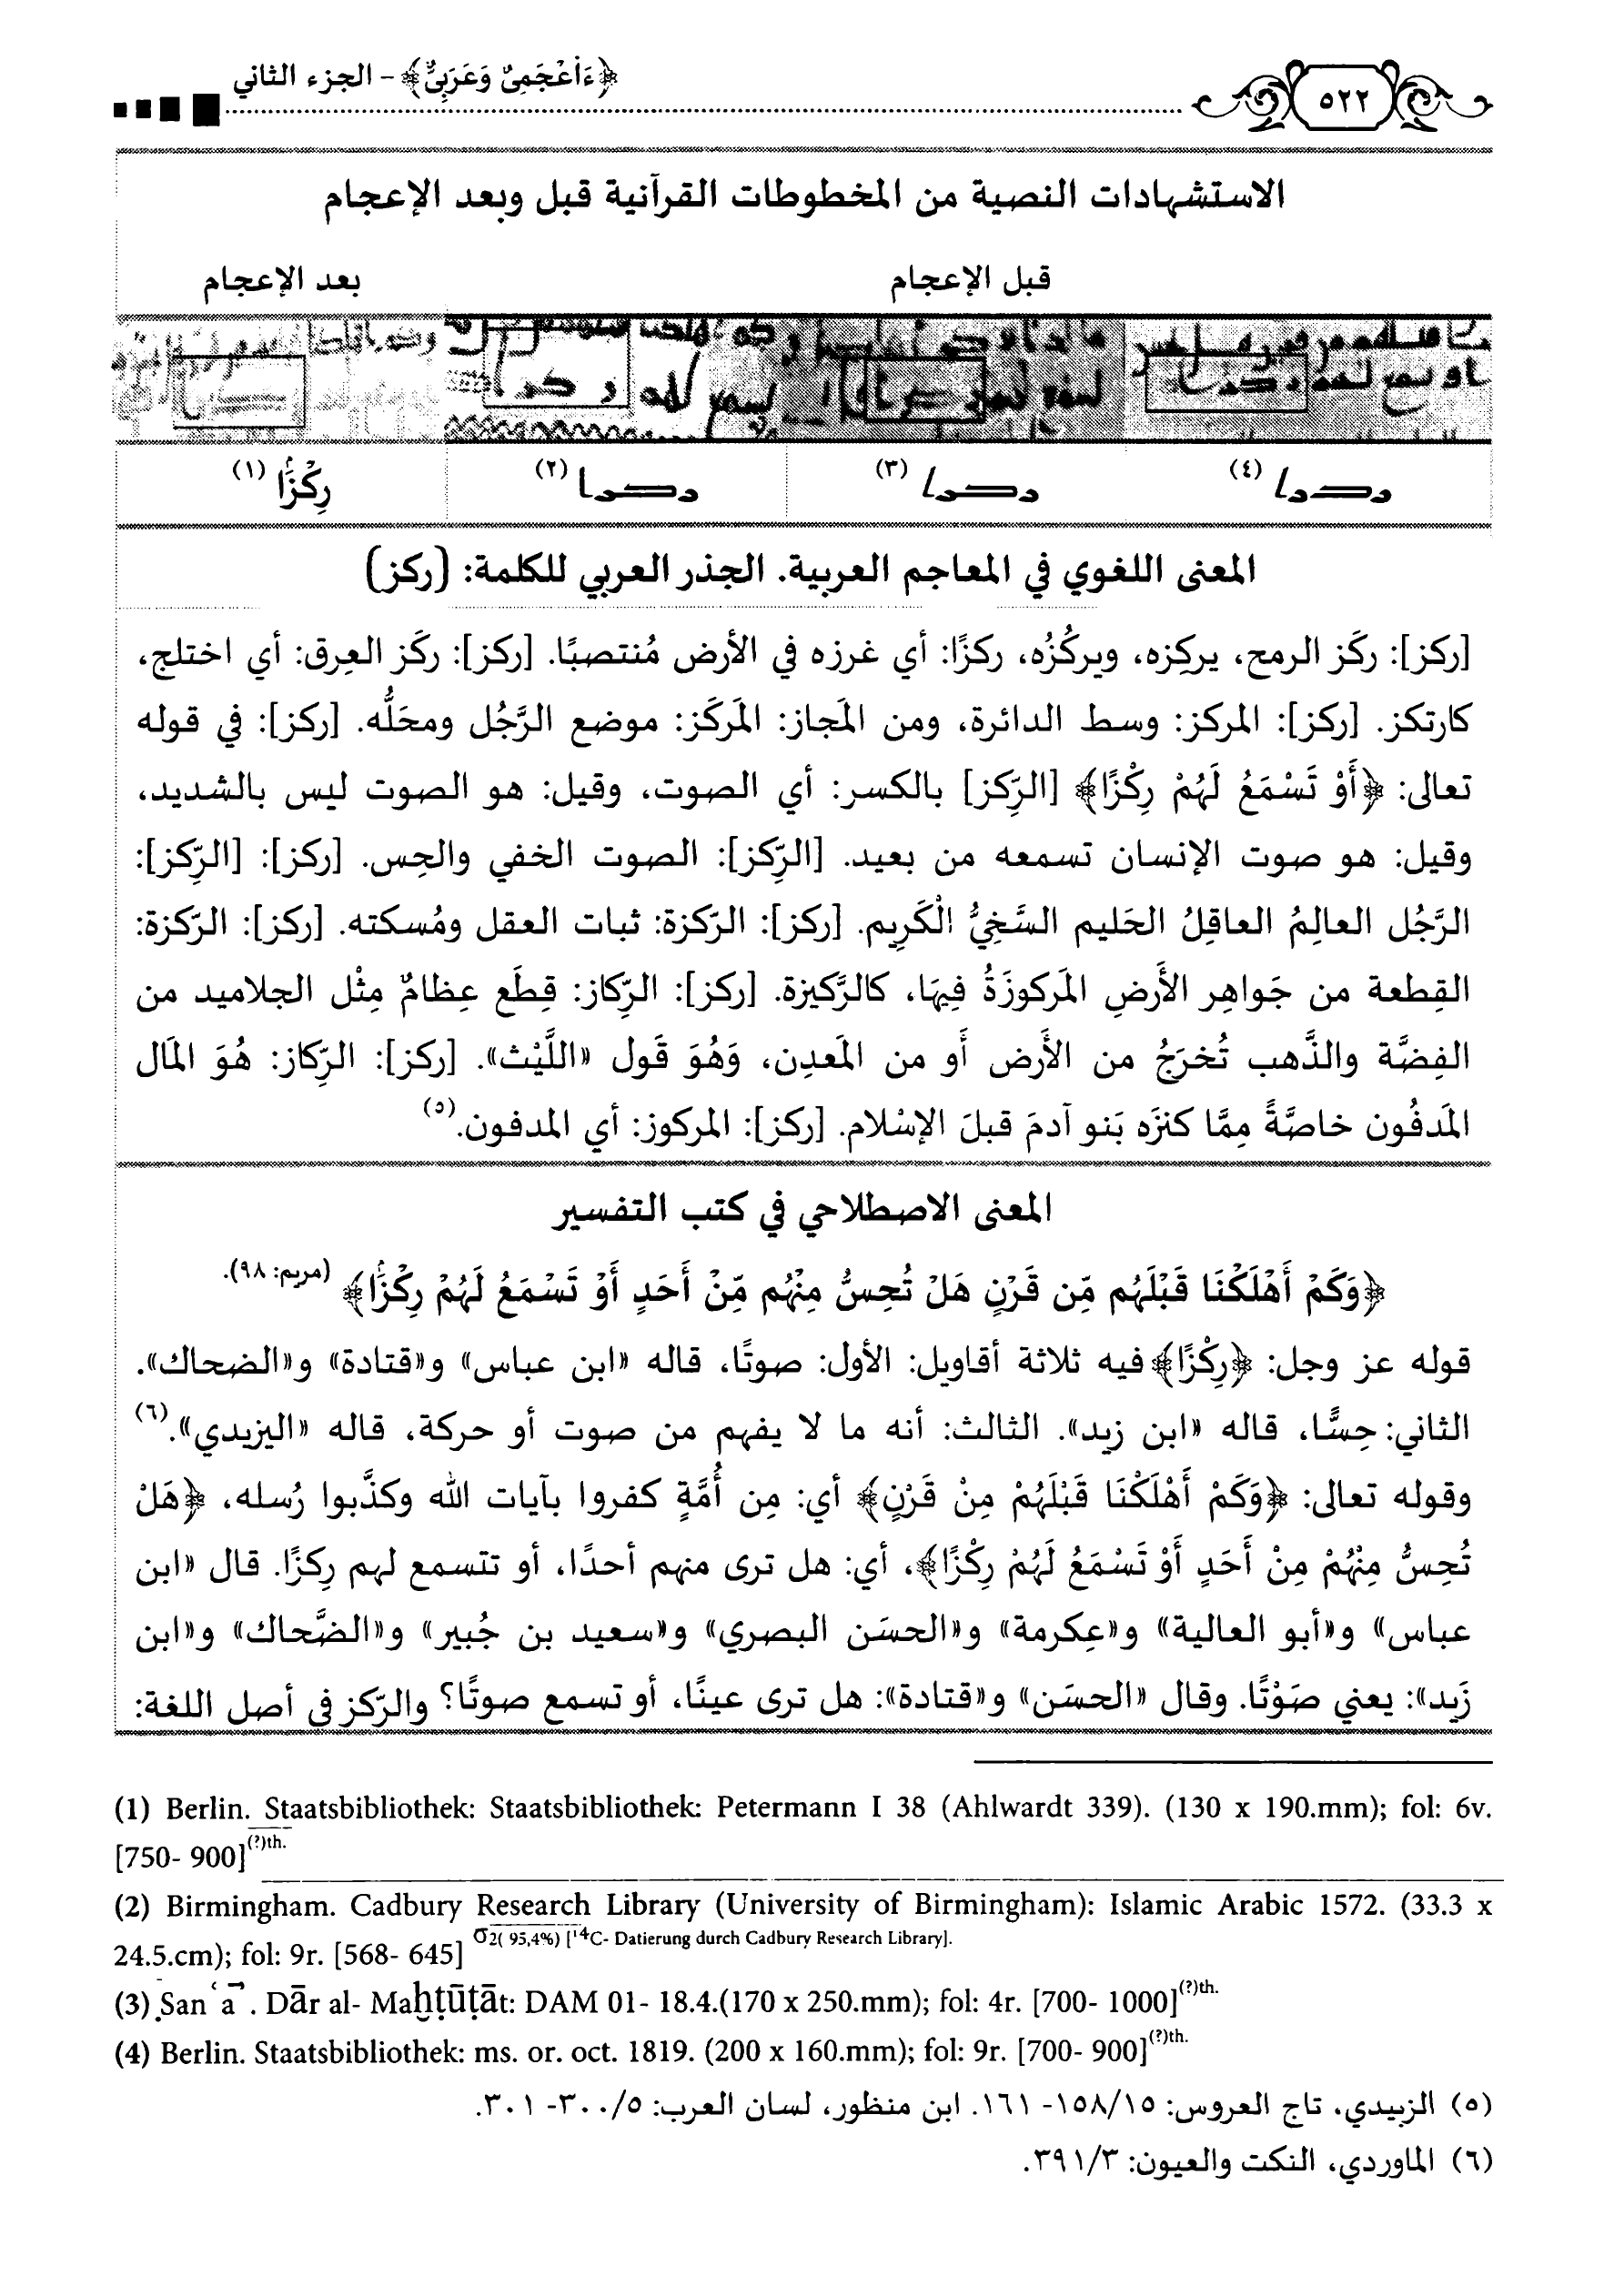 ﴿ءَأَعْجَمِىٌّ وَعَرَبِىٌّ﴾ - الجزء الثاني
٥٢٢
الاستشهادات النصية من المخطوطات القرآنية قبل وبعد الإعجام
قبل الإعجام
بعد الإعجام
(٤)
(٣)
(٢)
رِكْزًا (١)
المعنى اللغوي في المعاجم العربية. الجذر العربي للكلمة: (ركز)
[ركز]: ركَز الرمح، يركِزه، ويركُزُه، ركزًا: أي غرزه في الأرض مُنتصبًا. [ركز]: ركَز العِرق: أي اختلج،
كارتكز. [ركز]: المركز: وسط الدائرة، ومن المَجاز: المَركَز: موضع الرَّجُل ومحَلُّه. [ركز]: في قوله
تعالى: ﴿أَوْ تَسْمَعُ لَهُمْ رِكْزًا﴾ [الرِّكز] بالكسر: أي الصوت، وقيل: هو الصوت ليس بالشديد،
وقيل: هو صوت الإنسان تسمعه من بعيد. [الرِّكز]: الصوت الخفي والحِس. [ركز]: [الرِّكز]:
الرَّجُل العالِمُ العاقِلُ الحَليم السَّخِيُّ الْكَرِيم. [ركز]: الرّكزة: ثبات العقل ومُسكته. [ركز]: الرّكزة:
القِطعة من جَواهِر الأَرضِ المَركوزَةُ فِيهَا، كالرَّكيزة. [ركز]: الرِّكاز: قِطَع عِظامٌ مِثْل الجلاميد من
الفِضَّة والذَّهب تُخرَجُ من الأَرض أَو من المَعدِن، وَهُوَ قَول «اللَّيْث». [ركز]: الرِّكاز: هُوَ المَال
المَدفُون خاصَّةً مِمَّا كنزَه بَنو آدمَ قبلَ الإسْلام. [ركز]: المركوز: أي المدفون.(٥)
المعنى الاصطلاحي في كتب التفسير
﴿وَكَمْ أَهْلَكْنَا قَبْلَهُم مِّن قَرْنٍ هَلْ تُحِسُّ مِنْهُم مِّنْ أَحَدٍ أَوْ تَسْمَعُ لَهُمْ رِكْزًا﴾ (مريم: ٩٨).
قوله عز وجل: ﴿رِكْزًا﴾ فيه ثلاثة أقاويل: الأول: صوتًا، قاله «ابن عباس» و«قتادة» و«الضحاك».
الثاني: حِسًّا، قاله «ابن زيد». الثالث: أنه ما لا يفهم من صوت أو حركة، قاله «اليزيدي».(٦)
وقوله تعالى: ﴿وَكَمْ أَهْلَكْنَا قَبْلَهُمْ مِنْ قَرْنٍ﴾ أي: مِن أُمَّةٍ كفروا بآيات الله وكذَّبوا رُسله، ﴿هَلْ
تُحِسُّ مِنْهُمْ مِنْ أَحَدٍ أَوْ تَسْمَعُ لَهُمْ رِكْزًا﴾، أي: هل ترى منهم أحدًا، أو تتسمع لهم رِكزًا. قال «ابن
عباس» و«أبو العالية» و«عِكرمة» و«الحسَن البصري» و«سعيد بن جُبير» و«الضَّحاك» و«ابن
زَيد»: يعني صَوْتًا. وقال «الحسَن» و«قتادة»: هل ترى عينًا، أو تسمع صوتًا؟ والرّكز في أصل اللغة:
(1) Berlin. Staatsbibliothek: Staatsbibliothek: Petermann I 38 (Ahlwardt 339). (130 x 190.mm); fol: 6v.
[750- 900](?)th.
(2) Birmingham. Cadbury Research Library (University of Birmingham): Islamic Arabic 1572. (33.3 x
24.5.cm); fol: 9r. [568- 645] σ2( 95,4%) [14C- Datierung durch Cadbury Research Library].
(3) Ṣanʿāʾ. Dār al- Maḫṭūṭāt: DAM 01- 18.4.(170 x 250.mm); fol: 4r. [700- 1000](?)th.
(4) Berlin. Staatsbibliothek: ms. or. oct. 1819. (200 x 160.mm); fol: 9r. [700- 900](?)th.
(٥) الزبيدي، تاج العروس: ١٥٨/١٥- ١٦١. ابن منظور، لسان العرب: ٣٠٠/٥- ٣٠١.
(٦) الماوردي، النكت والعيون: ٣٩١/٣.